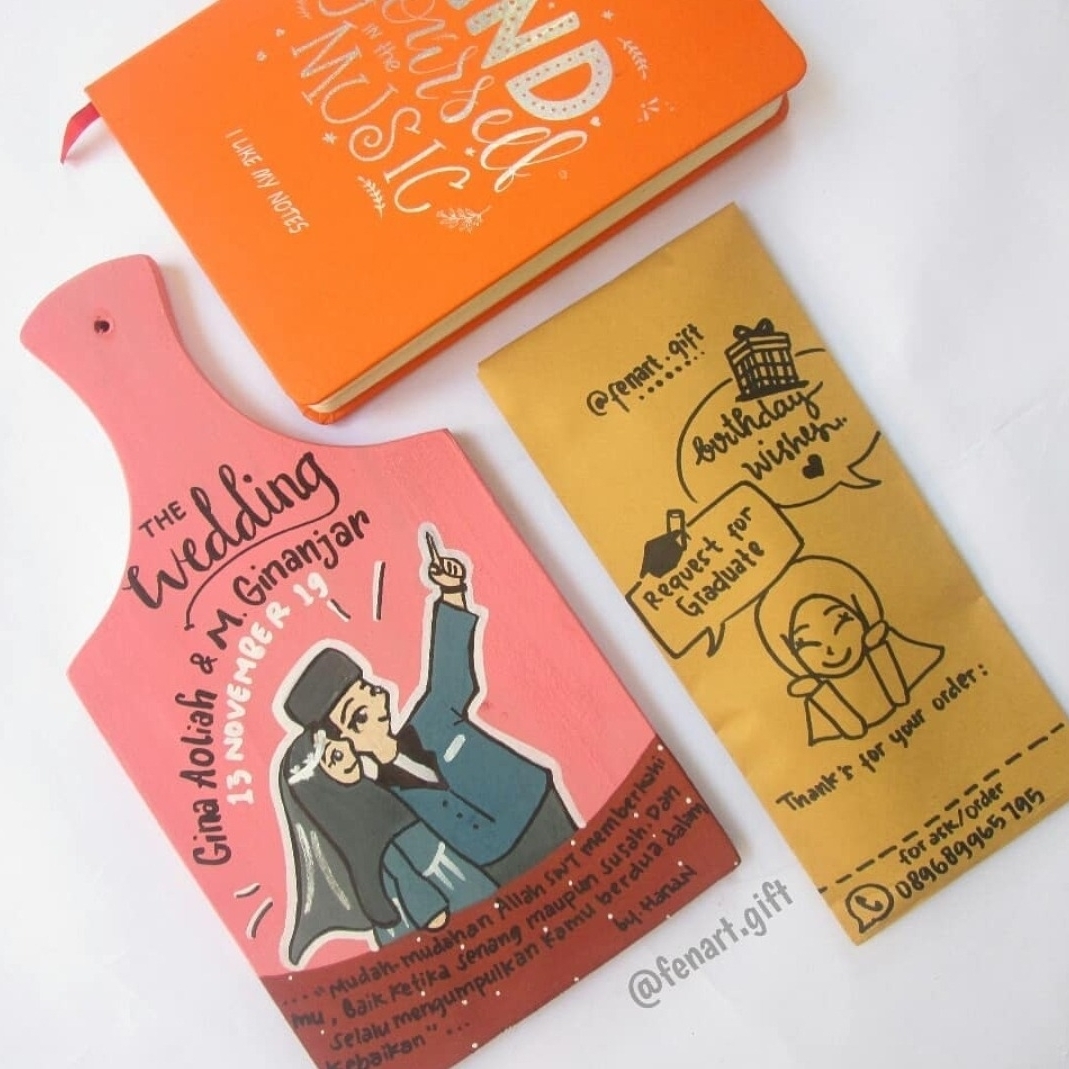 ND
ourself
IN the
MUSIC
I LIKE MY NOTES
THE
Wedding
Gina Aoliah & M. Ginanjar
13 NOVEMBER 19
... "Mudah-mudahan Allah SWT memberkahi
mu, Baik Ketika Senang maupun susah Dan
selalu mengumpulkan Kamu berdua dalam
Kebaikan" ...
by. Hanan
@fenart.gift
birthday
wishes..
Request for
Graduate
Thank's for your order:
for ask/order
089689965795
@fenart.gift